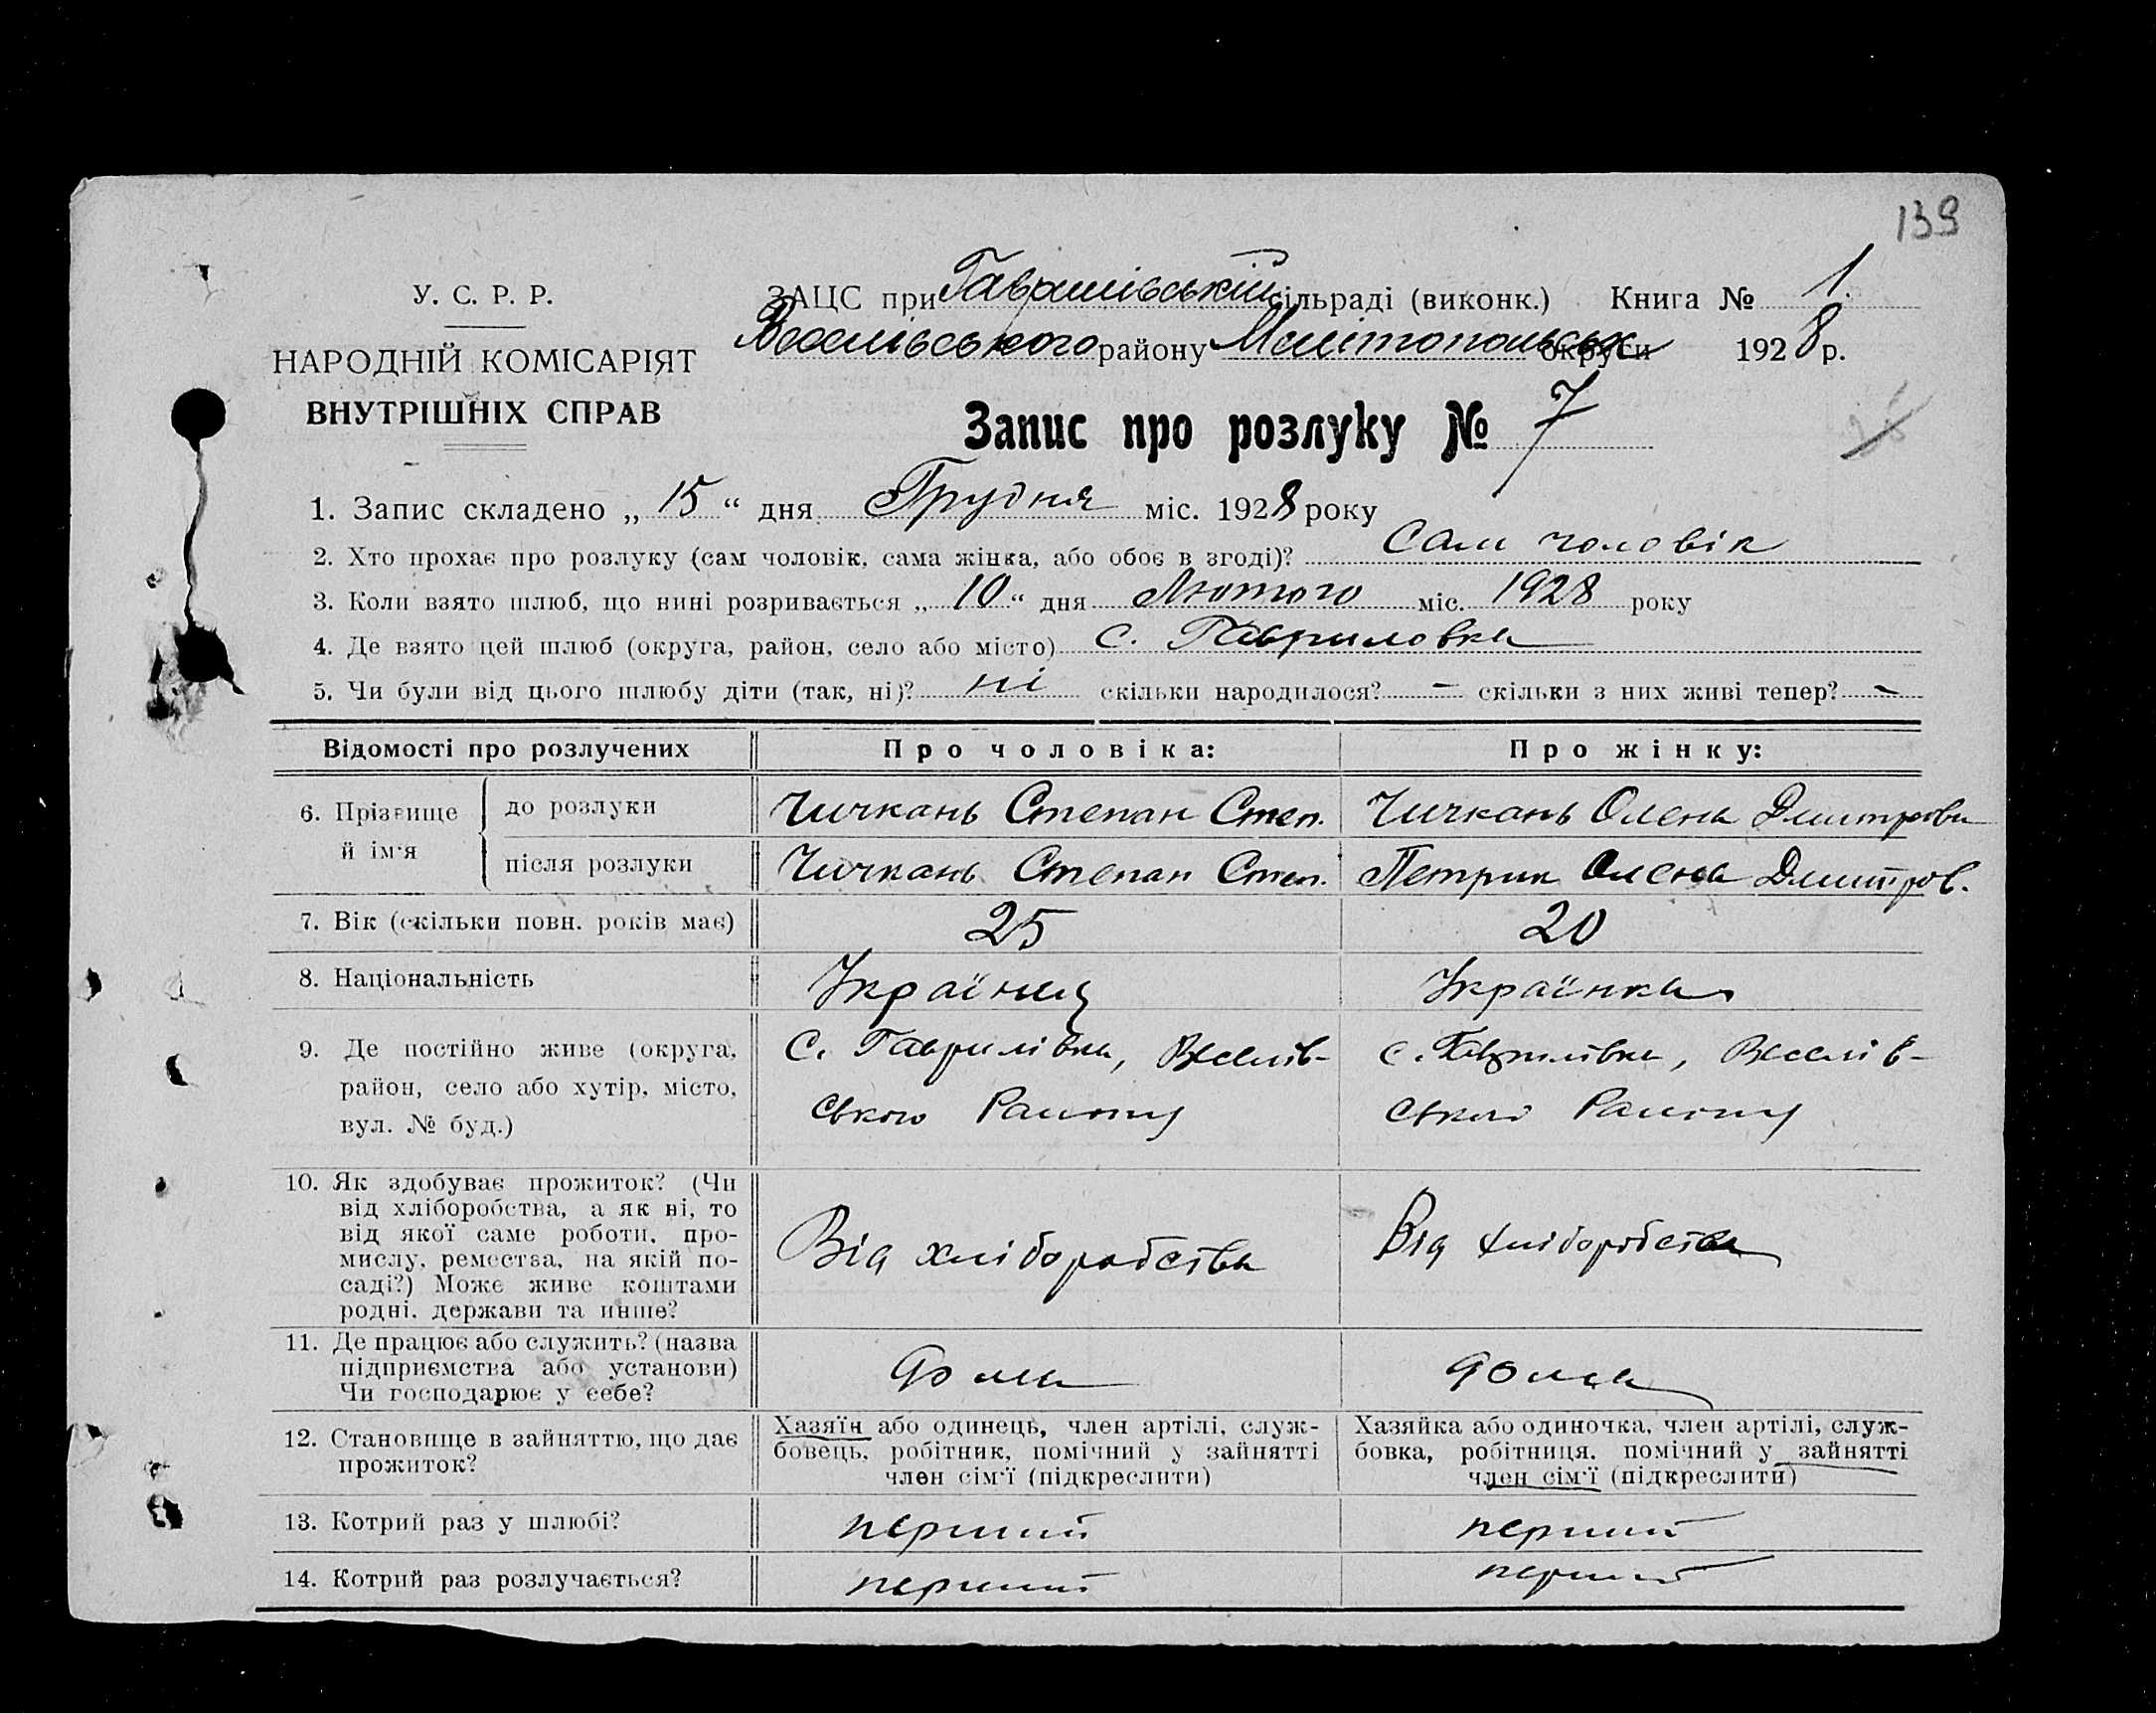 139
У. С. Р. Р.
НАРОДНІЙ КОМІСАРІЯТ
ВНУТРІШНІХ СПРАВ
ЗАЦС при Гаврилівській сільраді (виконк.) Книга № 1.
Веселівського району Мелітопольськ округи 1928 р.
Запис про розлуку № 7
1. Запис складено „ 15 “ дня Грудня міс. 1928 року
2. Хто прохає про розлуку (сам чоловік, сама жінка, або обоє в згоді)? Сам чоловік
3. Коли взято шлюб, що нині розривається „ 10 “ дня Лютого міс. 1928 року
4. Де взято цей шлюб (округа, район, село або місто) с. Гавриловка
5. Чи були від цього шлюбу діти (так, ні)? ні скільки народилося? – скільки з них живі тепер? –
Відомості про розлучених Про чоловіка: Про жінку:
6. Прізвище й ім'я до розлуки Чичкань Степан Степ. Чичкань Олена Дмитрови
після розлуки Чичкань Степан Степ. Петрик Олена Дмитров.
7. Вік (скільки повн. років має) 25 20
8. Національність Українец Українка
9. Де постійно живе (округа, район, село або хутір, місто, вул. № буд.)
с. Гаврилівка, Веселів-
ського Району
с. Гаврилівка, Веселів-
ського Району
10. Як здобуває прожиток? (Чи
від хліборобства, а як ні, то
від якої саме роботи, про-
мислу, ремества, на якій по-
саді?) Може живе коштами
родні, держави та инше?
Від хліборобства Від хліборобства
11. Де працює або служить? (назва
підприємства або установи)
Чи господарює у себе?
дома дома
12. Становище в зайняттю, що дає
прожиток?
Хазяїн або одинець, член артілі, служ-
бовець, робітник, помічний у зайнятті
член сім'ї (підкреслити)
Хазяйка або одиночка, член артілі, служ-
бовка, робітниця, помічний у зайнятті
член сім'ї (підкреслити)
13. Котрий раз у шлюбі? перший перший
14. Котрий раз розлучається? перший перший